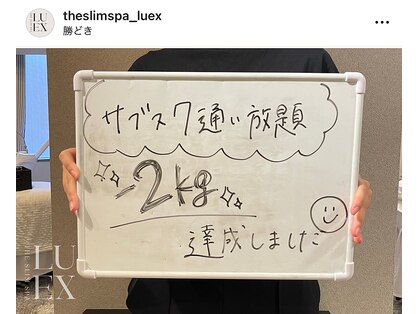 LU
EX
theslimspa_luex
勝どき
サブスク通い放題
-2kg
達成しました
LU
EX